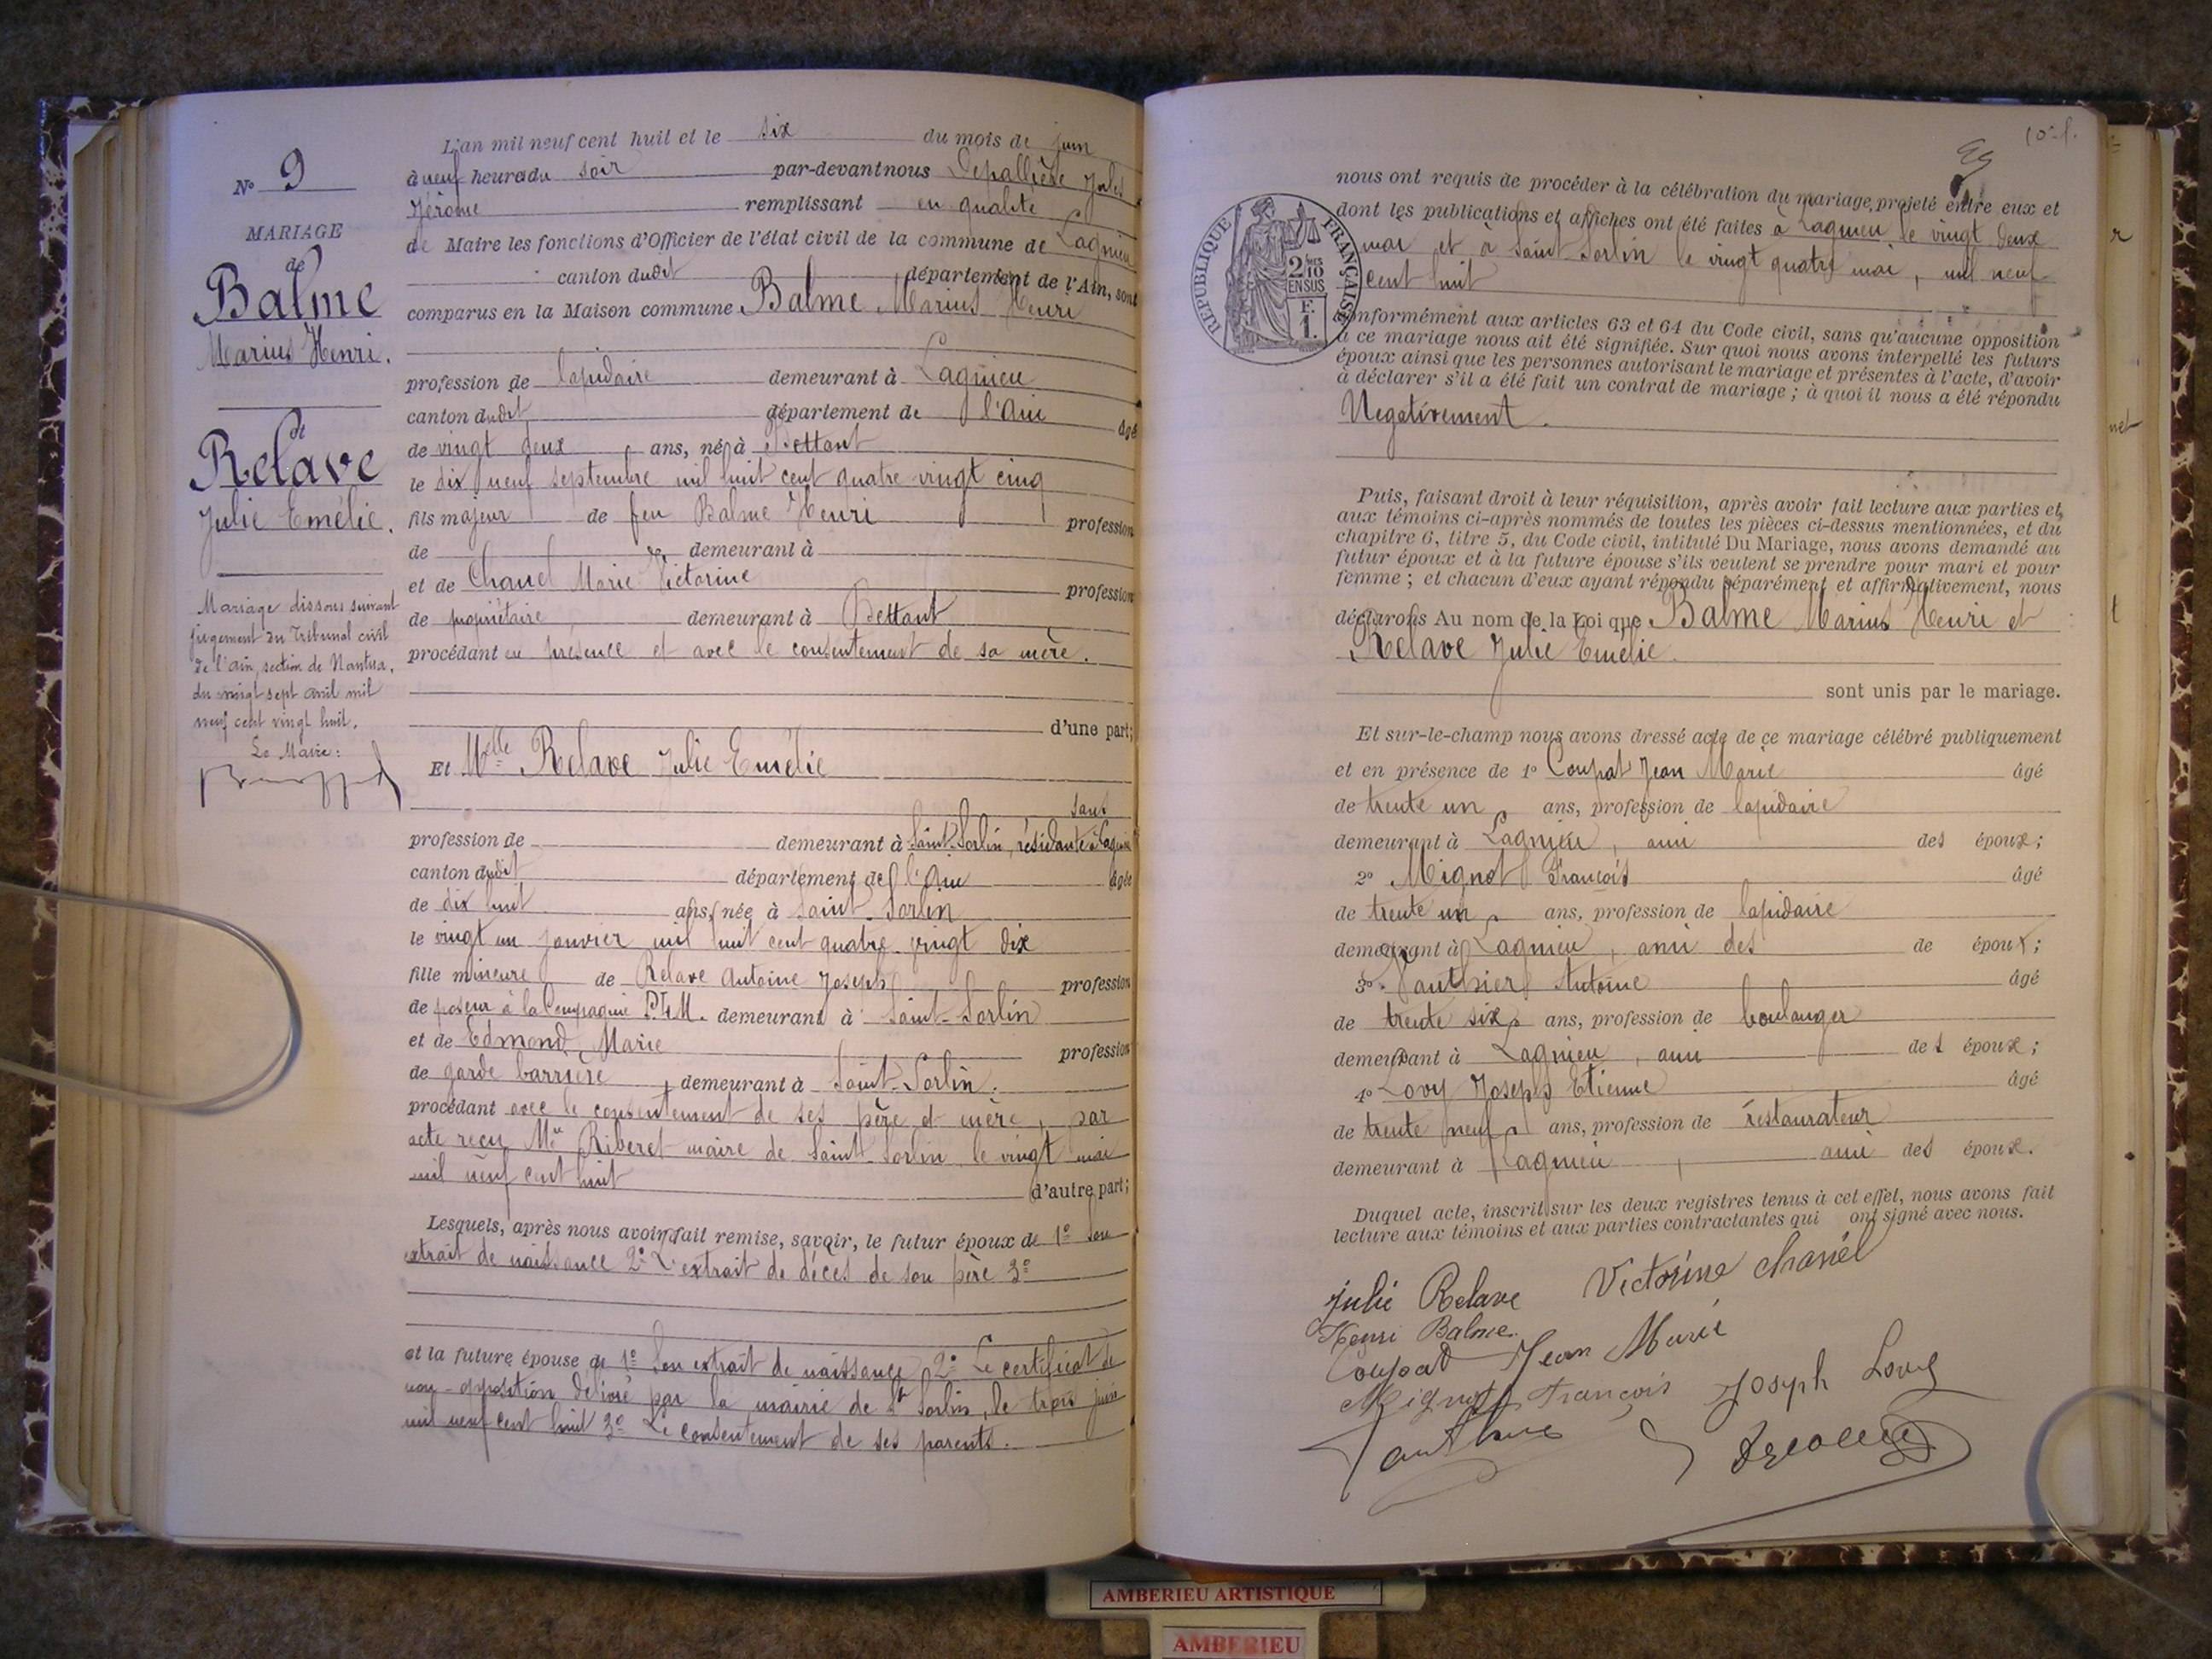 N° 9
MARIAGE
de
Balme
Marius Henri.
et
Relave
Julie Emélie.
Mariage dissous suivant
jugement du Tribunal civil
de l'Ain, section de Nantua,
du vingt sept avril mil
neuf cent vingt huit.
Le Maire:
L'an mil neuf cent huit et le six du mois de juin
à neuf heures du soir par-devant nous Depallière Jules
Jérome remplissant en qualité
de Maire les fonctions d'Officier de l'état civil de la commune de Lagnieu
canton dudit département de l'Ain, sont
comparus en la Maison commune Balme Marius Henri
profession de lapidaire demeurant à Lagnieu
canton dudit département de l'Ain âgé
de vingt deux ans, né à Bettant
le dix neuf septembre mil huit cent quatre-vingt cinq
fils majeur de feu Balme Henri profession
de demeurant à
et de Chanel Marie Victorine profession
de propriétaire demeurant à Bettant
procédant en présence et avec le consentement de sa mère.
d'une part;
Et Melle Relave Julie Emélie
sans
profession de demeurant à Saint-Sorlin, résidante à Lagnieu
canton dudit département de l'Ain âgée
de dix huit ans, née à Saint-Sorlin
le vingt un janvier mil huit cent quatre-vingt dix
fille mineure de Relave Antoine Joseph profession
de poseur à la Compagnie P.L.M. demeurant à Saint-Sorlin
et de Edmond Marie profession
de garde barrière, demeurant à Saint-Sorlin.
procédant avec le consentement de ses père et mère, par
acte reçu Me Riberet maire de Saint-Sorlin le vingt mai
mil neuf cent huit d'autre part;
Lesquels, après nous avoir fait remise, savoir, le futur époux de 1° Son
extrait de naissance 2° L'extrait de décès de son père 3°
et la future épouse de 1° Son extrait de naissance 2° Le certificat de
non-opposition délivré par la mairie de St Sorlin, le trois juin
mil neuf cent huit 3° Le consentement de ses parents.
nous ont requis de procéder à la célébration du mariage projeté entre eux et
dont les publications et affiches ont été faites à Lagnieu le vingt deux
mai et à Saint-Sorlin le vingt quatre mai, mil neuf
cent huit
RÉPUBLIQUE FRANÇAISE
2/10 EN SUS
F. 1.
Conformément aux articles 63 et 64 du Code civil, sans qu'aucune opposition
à ce mariage nous ait été signifiée. Sur quoi nous avons interpellé les futurs
époux ainsi que les personnes autorisant le mariage et présentes à l'acte, d'avoir
à déclarer s'il a été fait un contrat de mariage; à quoi il nous a été répondu
Negativement.
Puis, faisant droit à leur réquisition, après avoir fait lecture aux parties et
aux témoins ci-après nommés de toutes les pièces ci-dessus mentionnées, et du
chapitre 6, titre 5, du Code civil, intitulé Du Mariage, nous avons demandé au
futur époux et à la future épouse s'ils veulent se prendre pour mari et pour
femme; et chacun d'eux ayant répondu séparément et affirmativement, nous
déclarons Au nom de la Loi que Balme Marius Henri et
Relave Julie Emélie.
sont unis par le mariage.
Et sur-le-champ nous avons dressé acte de ce mariage célébré publiquement
et en présence de 1° Coupat Jean Marie âgé
de trente un ans, profession de lapidaire
demeurant à Lagnieu, ami des époux;
2° Mignot François âgé
de trente un ans, profession de lapidaire
demeurant à Lagnieu, ami des de époux;
3° Jauthier Antoine âgé
de trente six ans, profession de boulanger
demeurant à Lagnieu, ami des époux;
4° Lovy Joseph Etienne âgé
de trente neuf ans, profession de restaurateur
demeurant à Lagnieu, ami des époux.
Duquel acte, inscrit sur les deux registres tenus à cet effet, nous avons fait
lecture aux témoins et aux parties contractantes qui ont signé avec nous.
Julie Relave Victorine Chanel
Henri Balme
Coupat Jean Marie
Mignot François Joseph Lovy
AMBERIEU ARTISTIQUE
AMBERIEU